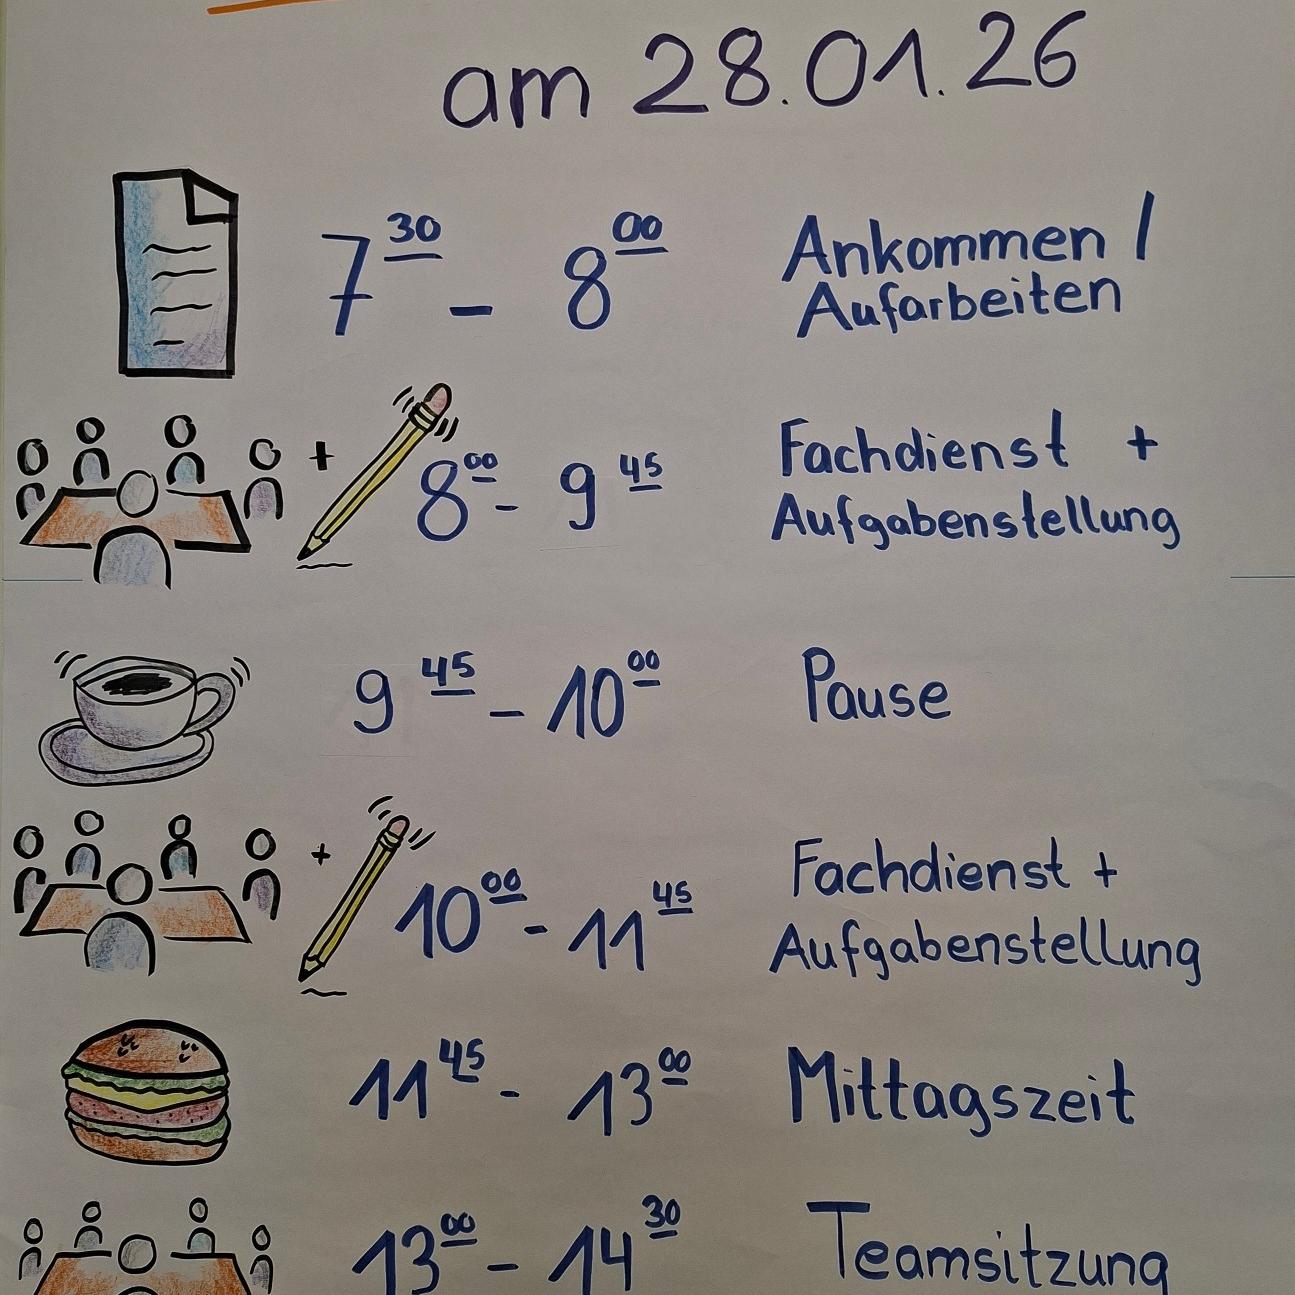 am 28.01.26
7 30 - 8 00 Ankommen /
Aufarbeiten
+ 8 00 - 9 45 Fachdienst +
Aufgabenstellung
9 45 - 10 00 Pause
+ 10 00 - 11 45 Fachdienst +
Aufgabenstellung
11 45 - 13 00 Mittagszeit
13 00 - 14 30 Teamsitzung